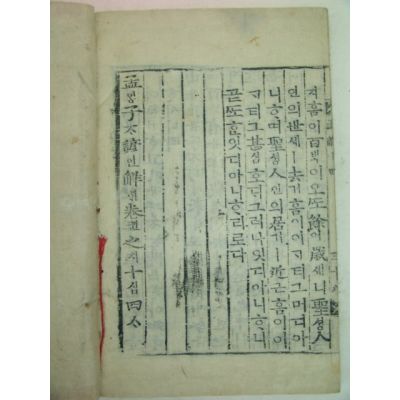 지홈이百ᄇᆡᆨ이오ᄯᅩ餘여歲셰니聖셩人
인의世셰ㅣ去거홈이이ᄀᆞ티그머디아
니ᄒᆞ며聖셩人인의居거ㅣ近근홈이이
ᄀᆞ티그甚심호ᄃᆡ그러나잇디아니ᄒᆞ니
곧ᄯᅩ홈잇디아니ᄒᆞ리로다
孟ᄆᆡᆼ子ᄌᆞ諺언解ᄒᆡ卷권之지十십四ᄉᆞ